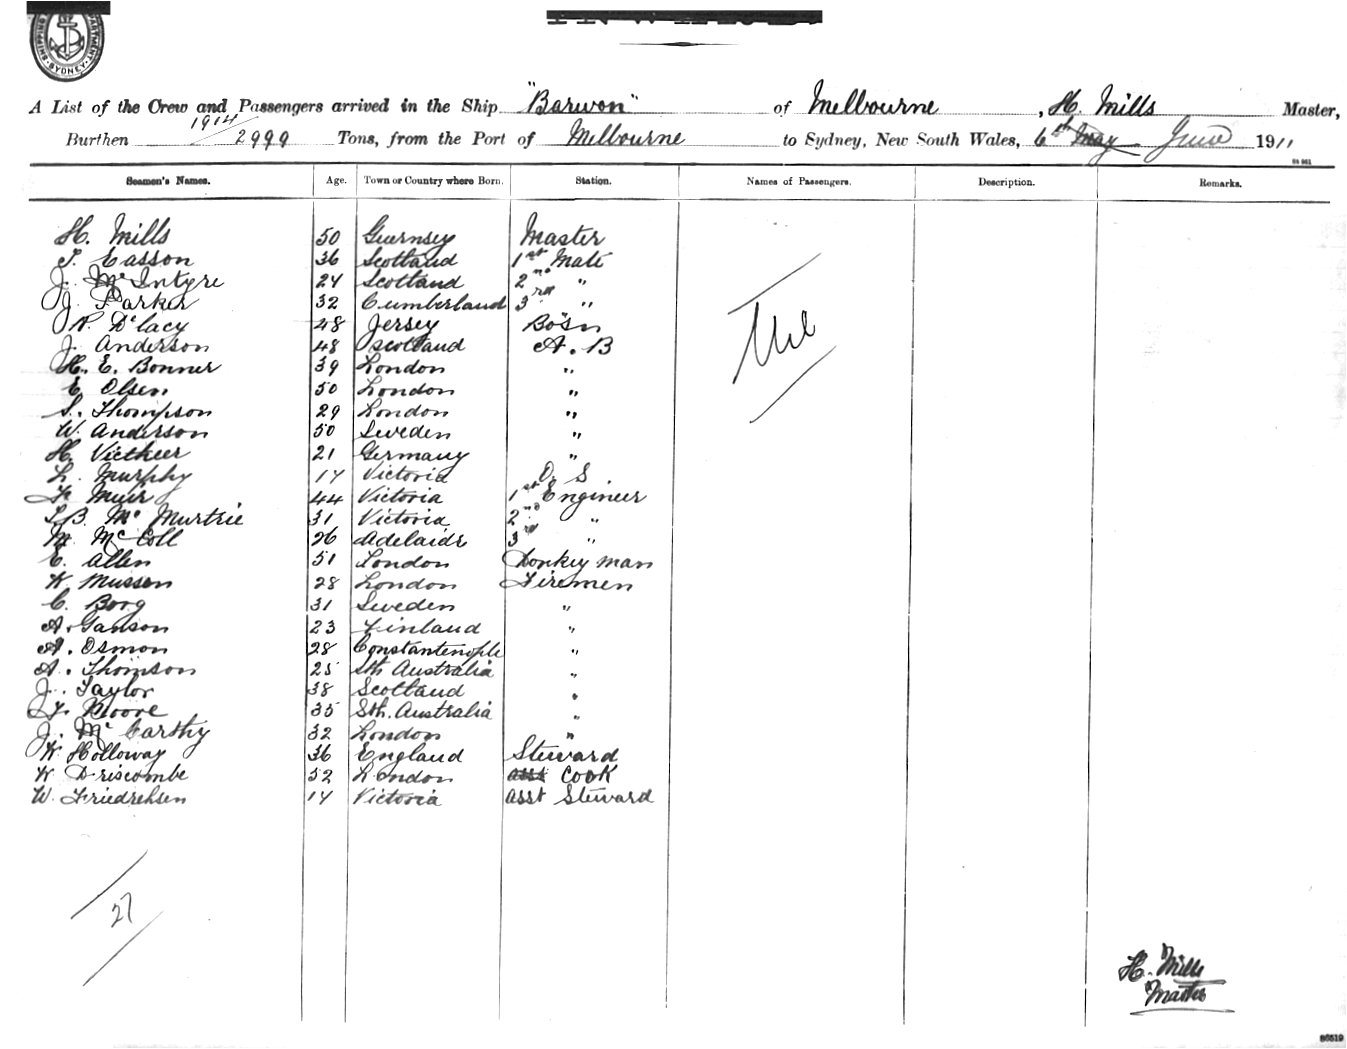 SYDNEY
A List of the Crew and Passengers arrived in the Ship "Barwon" of Melbourne, H. Mills Master,
Burthen 1914/2999 Tons, from the Port of Melbourne to Sydney, New South Wales, 6th May June 1911
Seamen's Names. Age. Town or Country where Born. Station. Names of Passengers. Description. Remarks.
H. Mills 50 Guernsey Master
T. Easson 36 Scotland 1st Mate
J. McIntyre 24 Scotland 2nd "
J. Parker 32 Cumberland 3rd "
P. D'lacy 48 Jersey Bosn
J. Anderson 48 Scotland A.B
H. E. Bonner 39 London "
E Olsen 50 London "
S. Thompson 29 London "
W. Anderson 50 Sweden "
H. 21 Germany "
L. Murphy 17 Victoria O.S.
F. Muir 44 Victoria 1st Engineer
McMurtrie 31 Victoria 2nd "
M. McColl 26 Adelaide 3rd "
E. Allen 51 London Donkey man
W Mussen 28 London Firemen
C. Borg 31 Sweden "
A. Ganson 23 Finland "
A. Osmon 28 Constantenople "
A. Thomson 25 Sth Australia "
J. Taylor 38 Scotland "
F. Moore 35 Sth. Australia "
J. McCarthy 32 London "
W. Holloway 36 England Steward
W Driscombe 52 London asst Cook
W. Friedrehsen 17 Victoria asst Steward
Nil
27
H. Mills
Master
86519